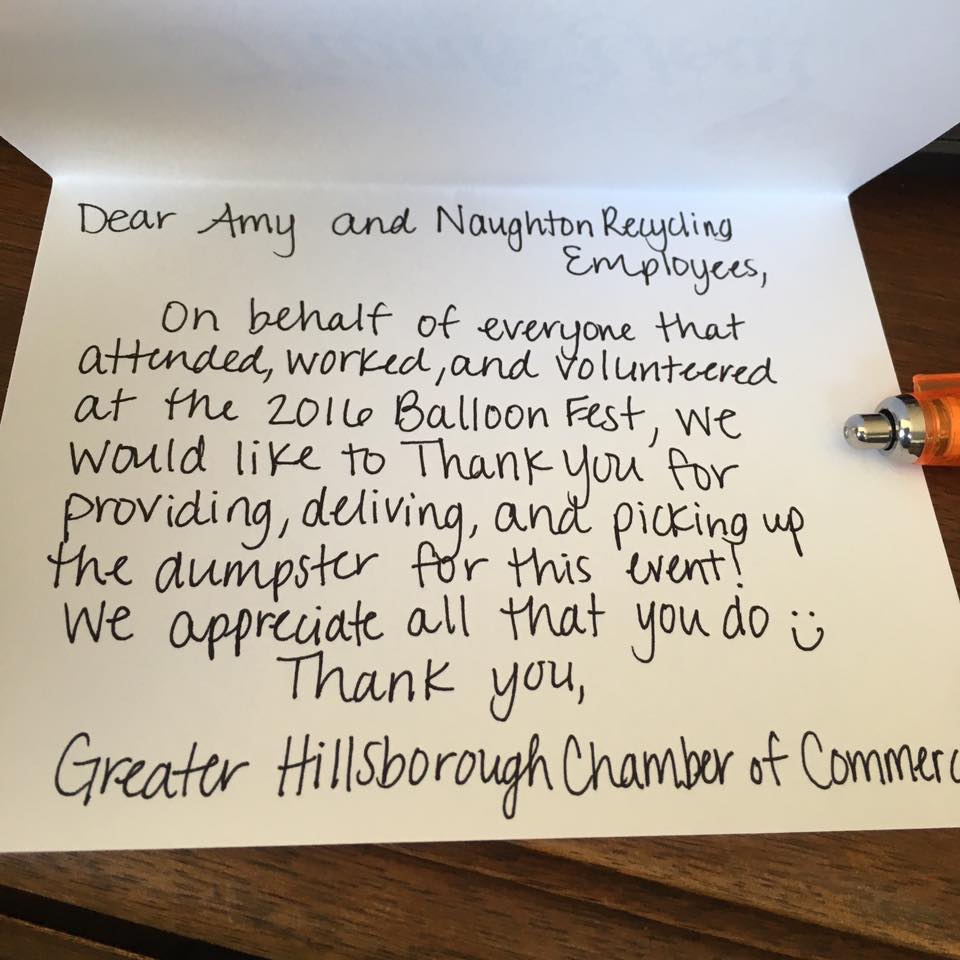 Dear Amy and Naughton Recycling
Employees,
On behalf of everyone that
attended, worked, and volunteered
at the 2016 Balloon Fest, we
would like to Thank you for
providing, deliving, and picking up
the dumpster for this event!
We appreciate all that you do :)
Thank you,
Greater Hillsborough Chamber of Commerc